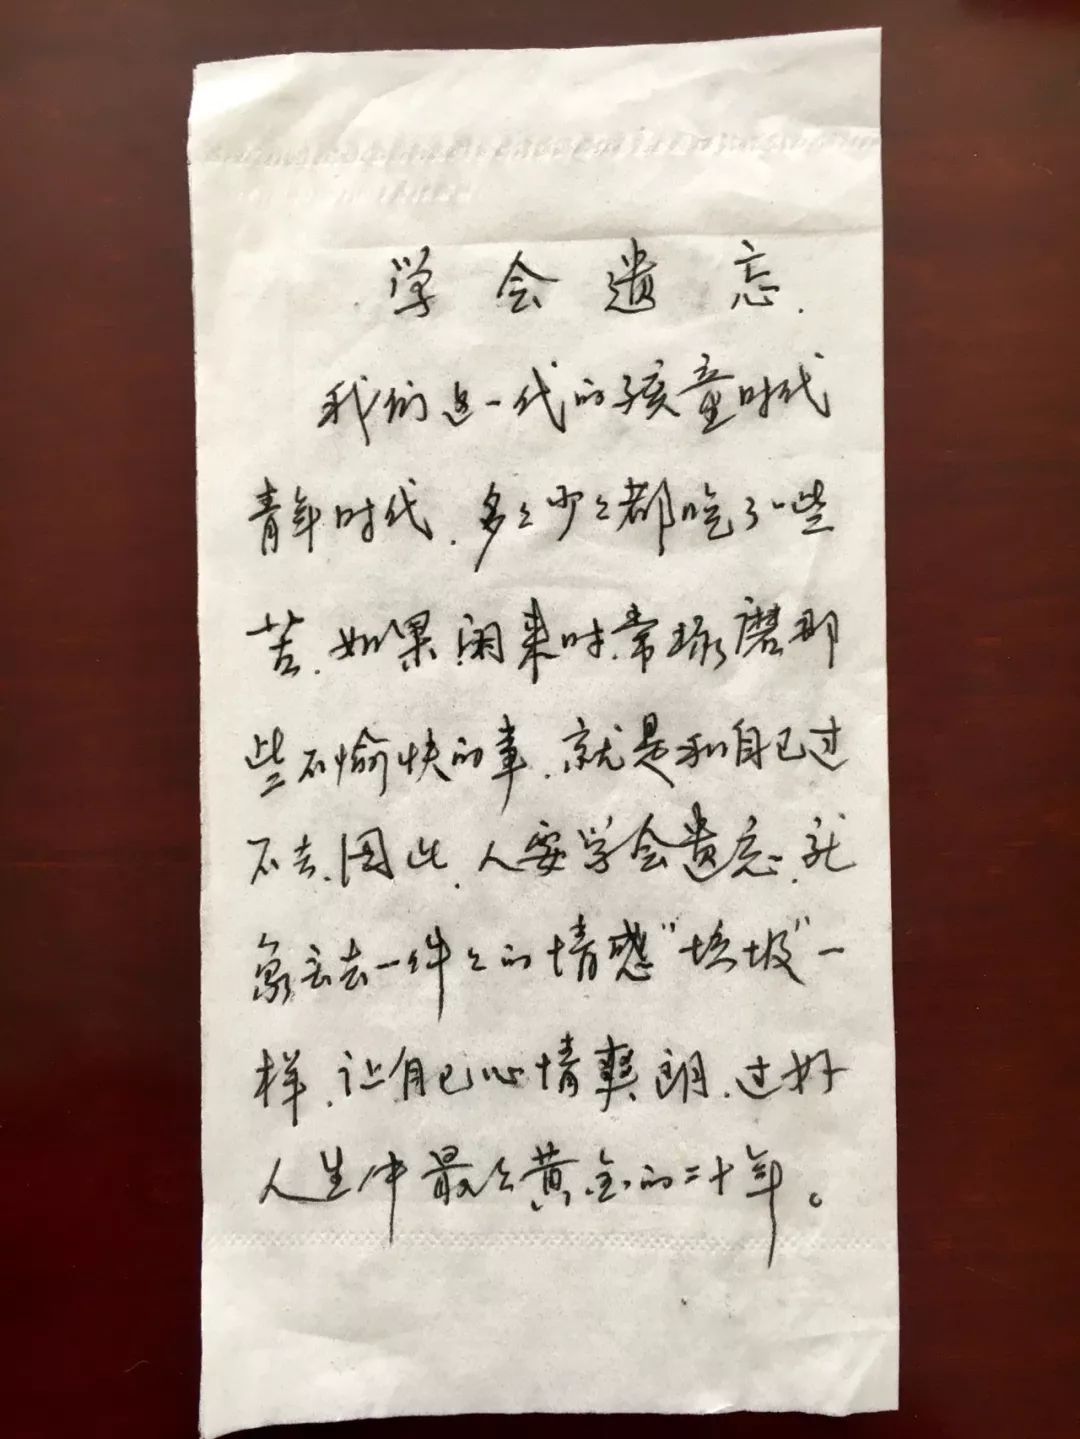 学会遗忘.
我们这一代的孩童时代
青年时代.多々少々都吃了一些
苦.如果闲来时.常琢磨那
些不愉快的事.就是和自己过
不去.因此.人要学会遗忘.就
象丢去一件々的情感"垃圾"一
样.让自己心情爽朗.过好
人生中最々黄金的二十年。